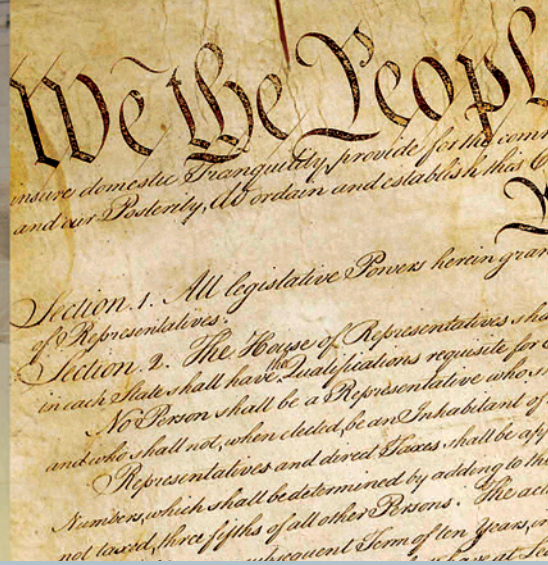 We the Peopl
insure domestic Tranquility, provide for the com
and our Posterity, do ordain and establish this
Section. 1. All legislative Powers herein gran
of Representatives.
Section. 2. The House of Representatives sha
in each State shall have the Qualifications requisite for
No Person shall be a Representative who s
and who shall not, when elected, be an Inhabitant of
Representatives and direct Taxes shall be app
Numbers, which shall be determined by adding to the
not taxed, three fifths of all other Persons. The act
subsequent Term of ten Years, in
have at Lea